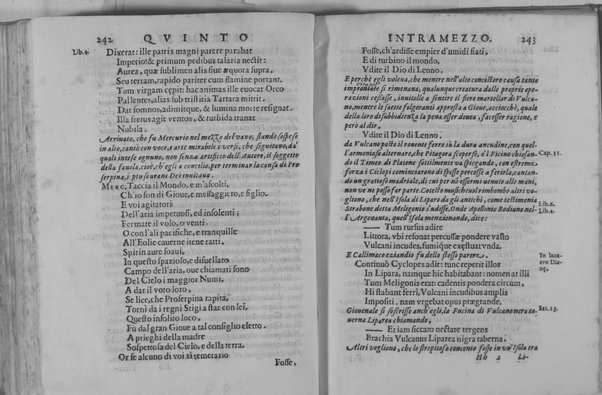 242 QVINTO
Lib.4. Dixerat: ille patris magni parere parabat
Imperio: & primum pedibus talaria nectit:
Aurea, quæ sublimen alis siue æquora supra,
Seu terram, rapido pariter cum flamine portant.
Tom virgam cępit hac animas ille euocat Orco
Pallentes, alias sub tristitia Tartara mittit.
Dat somnos, adimitque, & lumina morte resignat.
Illa fretus agit ventos, & turbida tranat
Nubila.
Arriuato, che fu Mercurio nel mezzo del vano, stando sospeso
in alto, cantò con voce, e arte mirabile i versi, che seguitano, di
quali intese ognuno, non senza artificio dell'Autore, il soggetto
della fauola, cioè, ch'egli a concilio, per terminar la causa di Pro
serpina, i più sourani Dei inuitaua.
MERC. Taccia il Mondo, e m'ascolti,
Ch'io son di Gioue e messaggiero, e figlio.
E voi agitatori
Dell'aria impetuosi, ed insolenti;
Fermate il volo, o venti.
O con l'ali pacifiche, e tranquille
All'Eolie cauerne itene ratti.
Spirin aure soaui,
In questo spazioso, e disuelato
Campo dell'aria, oue chiamati sono
Del Cielo i maggior Numi,
A dar il voto loro,
Se lice, che Proserpina rapita
Torni da i regni Stigi a star con lei,
Questo insolito loco,
Fù dal gran Gioue a tal consiglio eletto.
A prieghi della madre
Sospettosa del Cielo, e della terra.
Or se alcuno di voi sì temerario
Fosse,
INTRAMEZZO. 243
Fosse, ch'ardisse empier d'umidi fiati,
E di turbini il mondo,
Vdite il Dio di Lenno.
E perchè egli voleua, che mentre nell'alto concistoro causa tanto
importante si rimenaua, qualunque creatura dalle proprie ope-
razioni cessasse, inuitolle a sentire il fiero martellar di Vulca-
no, mentre le saette folgoranti appresta a Gioue, acciochè, quale
della loro disubbidienza la pena esser douea, facesser ragione, e
però al dir,
Vdite il Dio di Lenno.
da Vulcano posto il rouente ferro in sù la dura ancudine, con quel-
l'armonioso alternare, che Pitagora scoperse, e'l Ficino chiosan-
do il Timeo di Platone sottilmente va spiegando, con estrema Cap. 31.
forza i Ciclopi cominciarono di spesse percosse a ferirla, cantan-
do un grottesco madriale, di cui per non essermi uenute alle mani,
non ve ne posso far parte. Cotesto musicheuol rimbombo altri vo-
gliono, che nell'Isola di Lipara da gli antichi, come testimonia Lib.6.
Strabone detta Meligonis s'udisse. Onde Apollonio Rodiano nel- Lib.4.
l'Argonauta, quell'Isola menzionando, dite:
—— Tum rursus adire
Littora, vbi resonat percussæ pondere vasto
Vulcani incudes, fumique exęstuat vnda.
E Callimaco eziandio fu dello stesso parere. In laua-
Continuò Cyclopes adit: tunc reperit illos cro Dia-
In Lipara, namque hic habitabant: nomen at illi næ,
Tum Meligonis erat: cadentis pondera circum,
Hi stabant ferri, Vulcani incudibus amplis
Impositi. nam vrgebat opus prægrande.
Giouenale si soscrisse anch'egli, la Fucina di Vulcano nera ta- Sat.13.
uerna Liparea chiamando,
—— Et iam siccato nectare tergens
Brachia Vulcanus Liparea nigra taberna.
Altri vogliono, che lo strepitoso concento fosse in vn'Isola tra
Hh 2 Li-